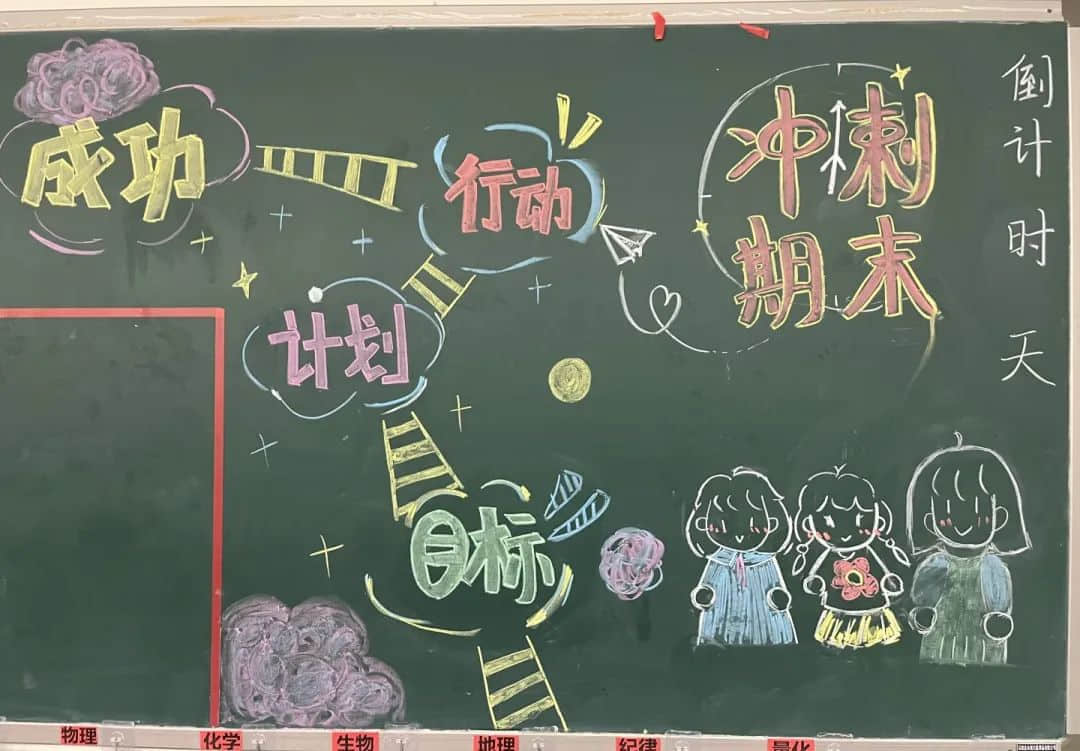 成功
行动
计划
目标
冲刺
期末
倒计时 天
物理
化学
生物
地理
纪律
量化